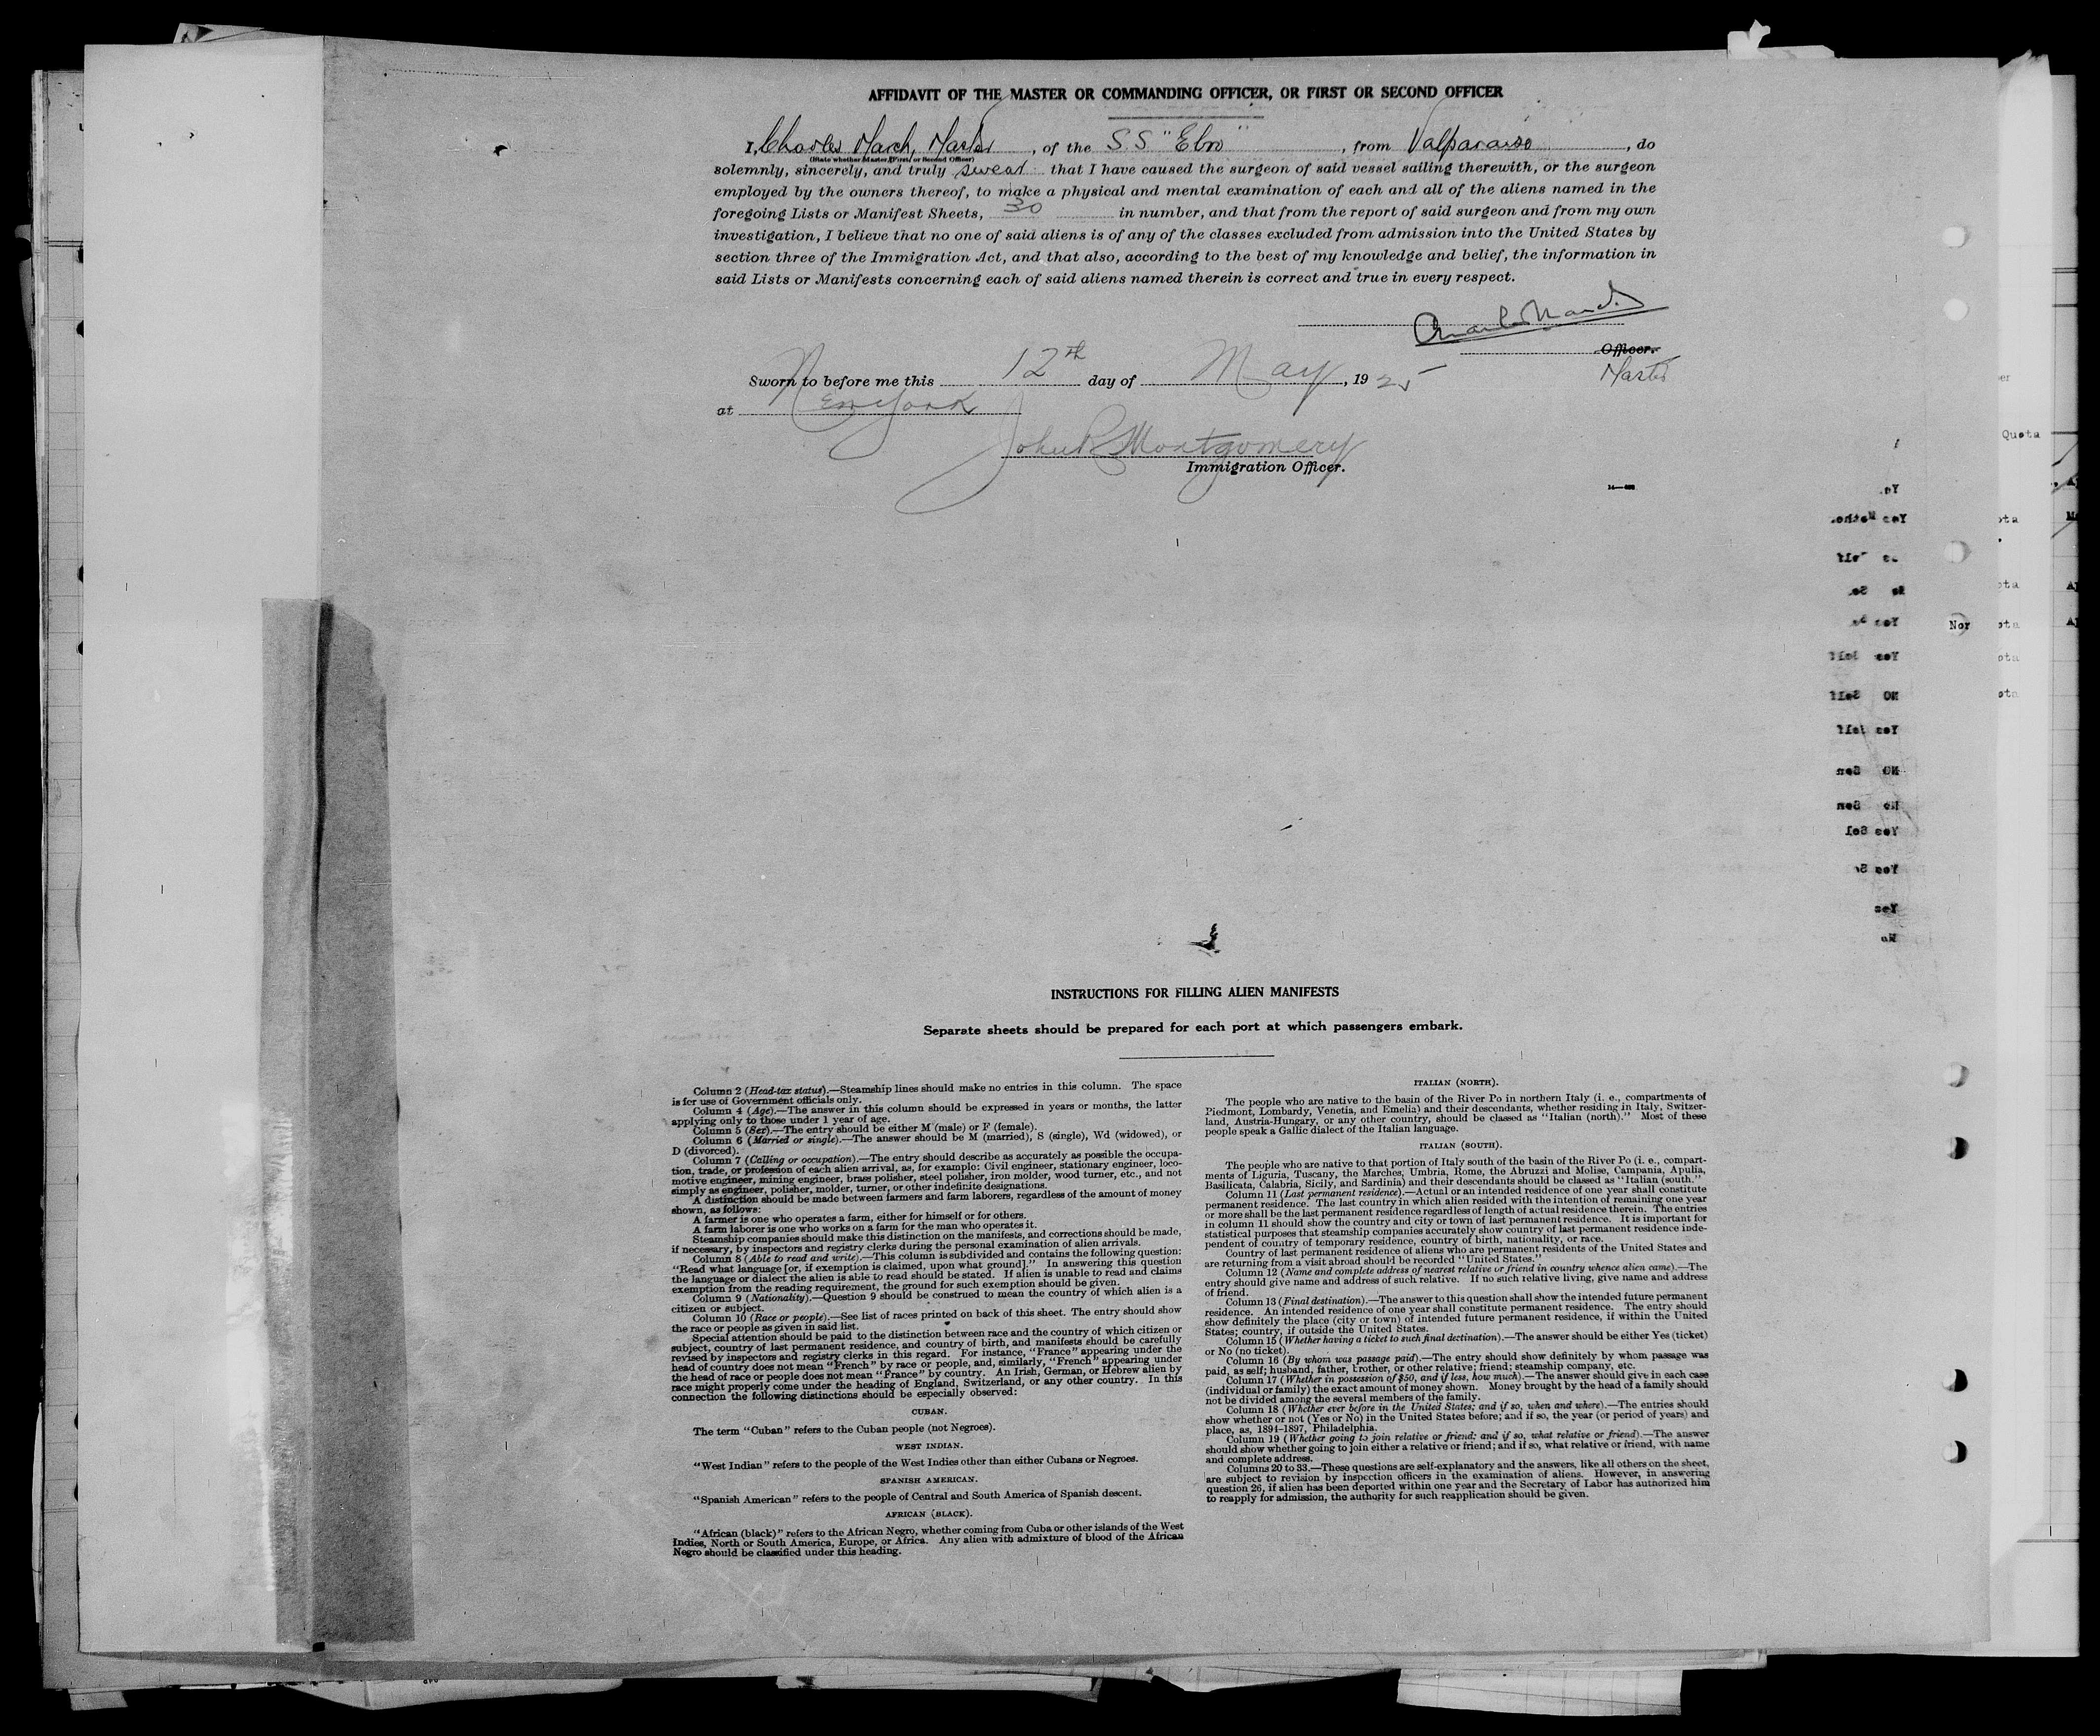 AFFIDAVIT OF THE MASTER OR COMMANDING OFFICER, OR FIRST OR SECOND OFFICER
I, Charles March, Master, of the S.S "Ebro", from Valparaiso, do
(State whether Master, First, or Second Officer)
solemnly, sincerely, and truly swear that I have caused the surgeon of said vessel sailing therewith, or the surgeon
employed by the owners thereof, to make a physical and mental examination of each and all of the aliens named in the
foregoing Lists or Manifest Sheets, 30 in number, and that from the report of said surgeon and from my own
investigation, I believe that no one of said aliens is of any of the classes excluded from admission into the United States by
section three of the Immigration Act, and that also, according to the best of my knowledge and belief, the information in
said Lists or Manifests concerning each of said aliens named therein is correct and true in every respect.
Officer.
Master
Sworn to before me this 12th day of May, 1925
at New York
John R Montgomery
Immigration Officer.
Quota
Nor
INSTRUCTIONS FOR FILLING ALIEN MANIFESTS
Separate sheets should be prepared for each port at which passengers embark.
Column 2 (Head-tax status).—Steamship lines should make no entries in this column. The space
is for use of Government officials only.
Column 4 (Age).—The answer in this column should be expressed in years or months, the latter
applying only to those under 1 year of age.
Column 5 (Sex).—The entry should be either M (male) or F (female).
Column 6 (Married or single).—The answer should be M (married), S (single), Wd (widowed), or
D (divorced).
Column 7 (Calling or occupation).—The entry should describe as accurately as possible the occupa-
tion, trade, or profession of each alien arrival, as, for example: Civil engineer, stationary engineer, loco-
motive engineer, mining engineer, brass polisher, steel polisher, iron molder, wood turner, etc., and not
simply as engineer, polisher, molder, turner, or other indefinite designations.
A distinction should be made between farmers and farm laborers, regardless of the amount of money
shown, as follows:
A farmer is one who operates a farm, either for himself or for others.
A farm laborer is one who works on a farm for the man who operates it.
Steamship companies should make this distinction on the manifests, and corrections should be made,
if necessary, by inspectors and registry clerks during the personal examination of alien arrivals.
Column 8 (Able to read and write).—This column is subdivided and contains the following question:
"Read what language [or, if exemption is claimed, upon what ground]." In answering this question
the language or dialect the alien is able to read should be stated. If alien is unable to read and claims
exemption from the reading requirement, the ground for such exemption should be given.
Column 9 (Nationality).—Question 9 should be construed to mean the country of which alien is a
citizen or subject.
Column 10 (Race or people).—See list of races printed on back of this sheet. The entry should show
the race or people as given in said list.
Special attention should be paid to the distinction between race and the country of which citizen or
subject, country of last permanent residence, and country of birth, and manifests should be carefully
revised by inspectors and registry clerks in this regard. For instance, "France" appearing under the
head of country does not mean "French" by race or people, and, similarly, "French" appearing under
the head of race or people does not mean "France" by country. An Irish, German, or Hebrew alien by
race might properly come under the heading of England, Switzerland, or any other country. In this
connection the following distinctions should be especially observed:
CUBAN.
The term "Cuban" refers to the Cuban people (not Negroes).
WEST INDIAN.
"West Indian" refers to the people of the West Indies other than either Cubans or Negroes.
SPANISH AMERICAN.
"Spanish American" refers to the people of Central and South America of Spanish descent.
AFRICAN (BLACK).
"African (black)" refers to the African Negro, whether coming from Cuba or other islands of the West
Indies, North or South America, Europe, or Africa. Any alien with admixture of blood of the African
Negro should be classified under this heading.
ITALIAN (NORTH).
The people who are native to the basin of the River Po in northern Italy (i. e., compartments of
Piedmont, Lombardy, Venetia, and Emelia) and their descendants, whether residing in Italy, Switzer-
land, Austria-Hungary, or any other country, should be classed as "Italian (north)." Most of these
people speak a Gallic dialect of the Italian language.
ITALIAN (SOUTH).
The people who are native to that portion of Italy south of the basin of the River Po (i. e., compart-
ments of Liguria, Tuscany, the Marches, Umbria, Rome, the Abruzzi and Molise, Campania, Apulia,
Basilicata, Calabria, Sicily, and Sardinia) and their descendants should be classed as "Italian (south."
Column 11 (Last permanent residence).—Actual or an intended residence of one year shall constitute
permanent residence. The last country in which alien resided with the intention of remaining one year
or more shall be the last permanent residence regardless of length of actual residence therein. The entries
in column 11 should show the country and city or town of last permanent residence. It is important for
statistical purposes that steamship companies accurately show country of last permanent residence inde-
pendent of country of temporary residence, country of birth, nationality, or race.
Country of last permanent residence of aliens who are permanent residents of the United States and
are returning from a visit abroad should be recorded "United States."
Column 12 (Name and complete address of nearest relative or friend in country whence alien came).—The
entry should give name and address of such relative. If no such relative living, give name and address
of friend.
Column 13 (Final destination).—The answer to this question shall show the intended future permanent
residence. An intended residence of one year shall constitute permanent residence. The entry should
show definitely the place (city or town) of intended future permanent residence, if within the United
States; country, if outside the United States.
Column 15 (Whether having a ticket to such final destination).—The answer should be either Yes (ticket)
or No (no ticket).
Column 16 (By whom was passage paid).—The entry should show definitely by whom passage was
paid, as self; husband, father, brother, or other relative; friend; steamship company, etc.
Column 17 (Whether in possession of $50, and if less, how much).—The answer should give in each case
(individual or family) the exact amount of money shown. Money brought by the head of a family should
not be divided among the several members of the family.
Column 18 (Whether ever before in the United States; and if so, when and where).—The entries should
show whether or not (Yes or No) in the United States before; and if so, the year (or period of years) and
place, as, 1894-1897, Philadelphia.
Column 19 (Whether going to join relative or friend; and if so, what relative or friend).—The answer
should show whether going to join either a relative or friend; and if so, what relative or friend, with name
and complete address.
Columns 20 to 33.—These questions are self-explanatory and the answers, like all others on the sheet,
are subject to revision by inspection officers in the examination of aliens. However, in answering
question 26, if alien has been deported within one year and the Secretary of Labor has authorized him
to reapply for admission, the authority for such reapplication should be given.